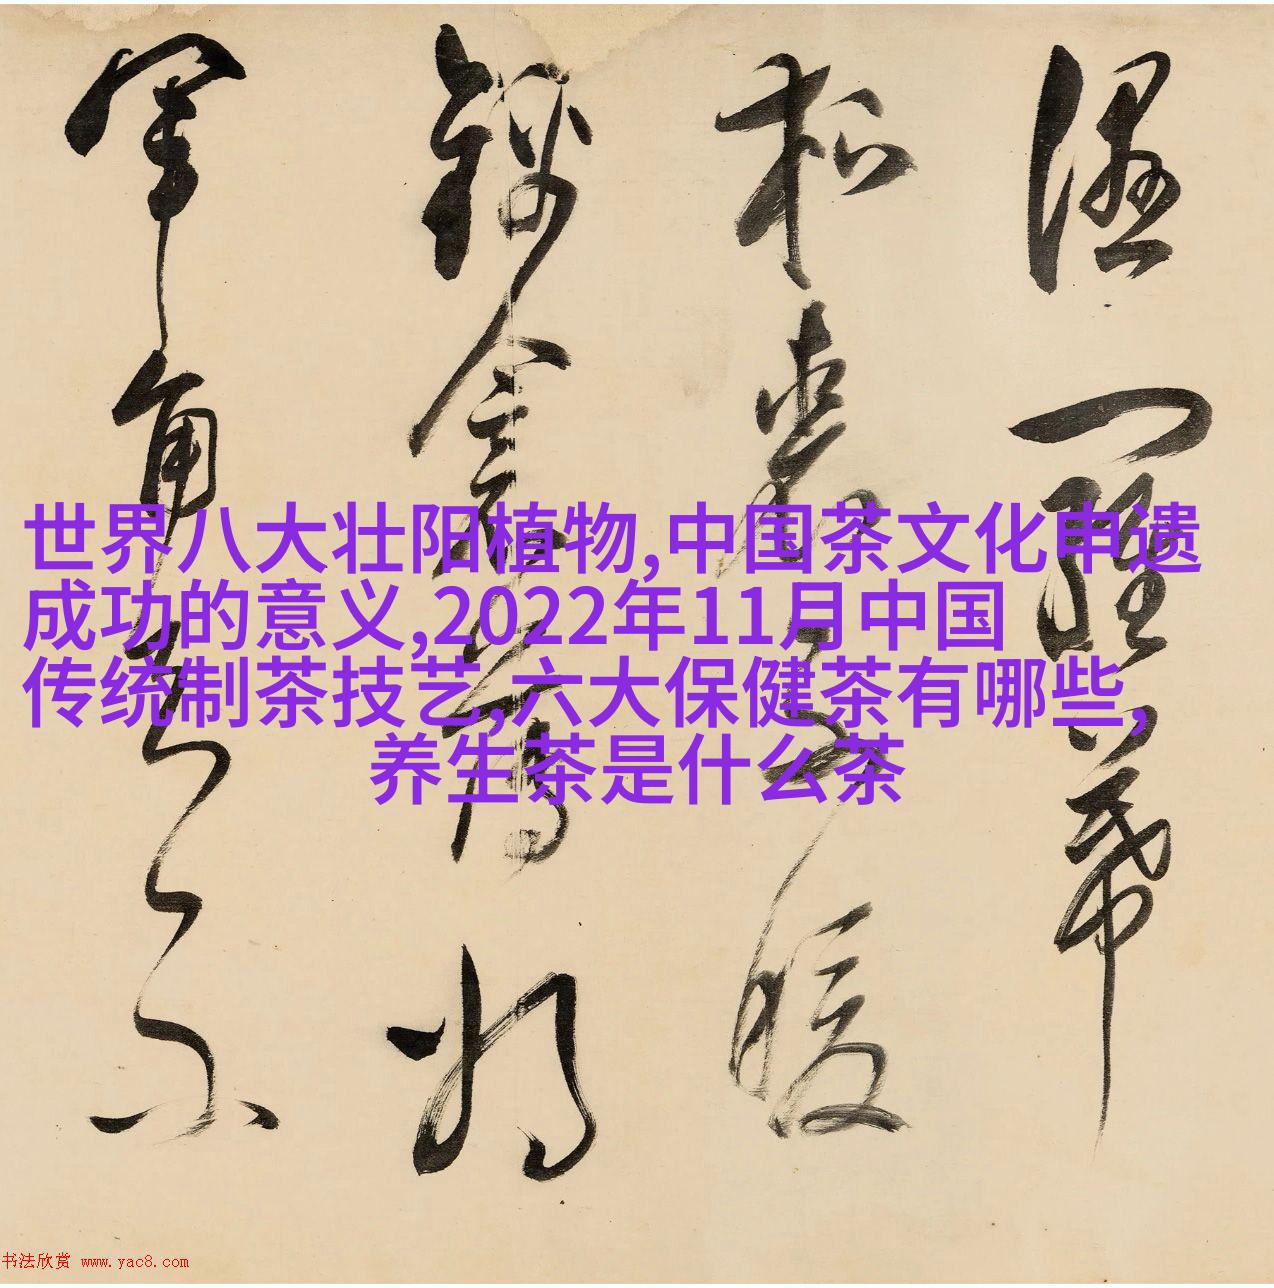 濕羅幕
狐裘不暖
錦衾薄將
軍角弓不
世界八大壮阳植物,中国茶文化申遗
成功的意义,2022年11月中国
传统制茶技艺,六大保健茶有哪些,
养生茶是什么茶
书法欣赏 www.yac8.com